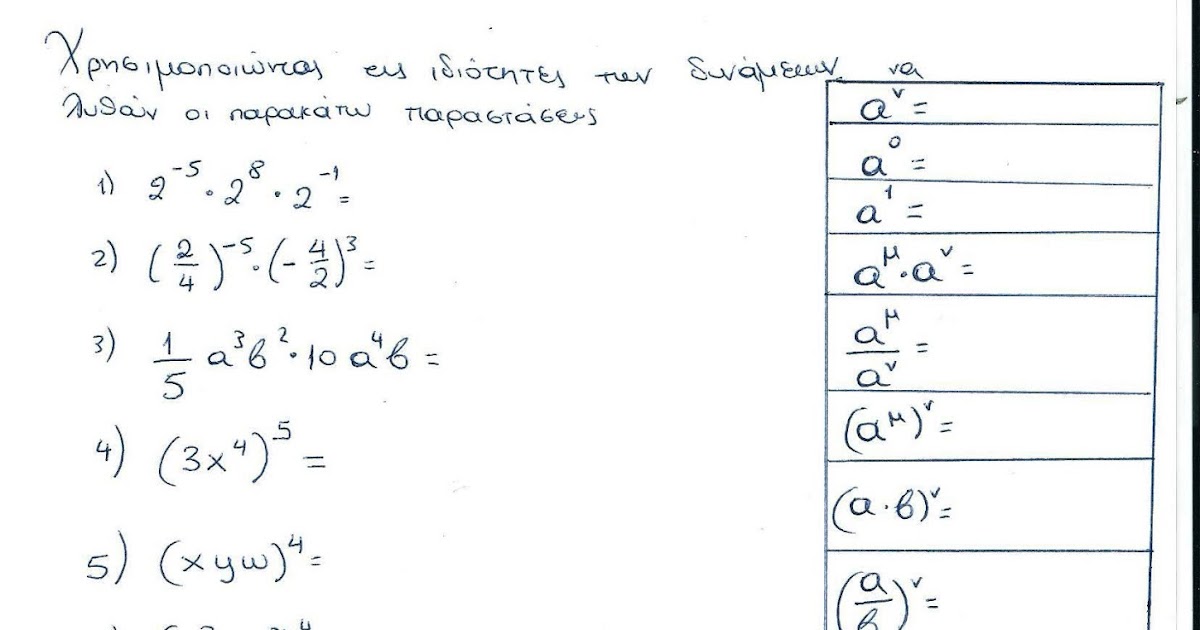 Χρησιμοποιώντας τις ιδιότητες των δυνάμεων, να
λυθούν οι παρακάτω παραστάσεις
1) 2⁻⁵ · 2⁸ · 2⁻¹ =
2) (2/4)⁻⁵ · (-4/2)³ =
3) 1/5 α³β² · 10 α⁴β =
4) (3x⁴)⁻⁵ =
5) (xyω)⁴ =
α^ν =
α⁰ =
α¹ =
α^μ · α^ν =
α^μ/α^ν =
(α^μ)^ν =
(α · β)^ν =
(α/β)^ν =